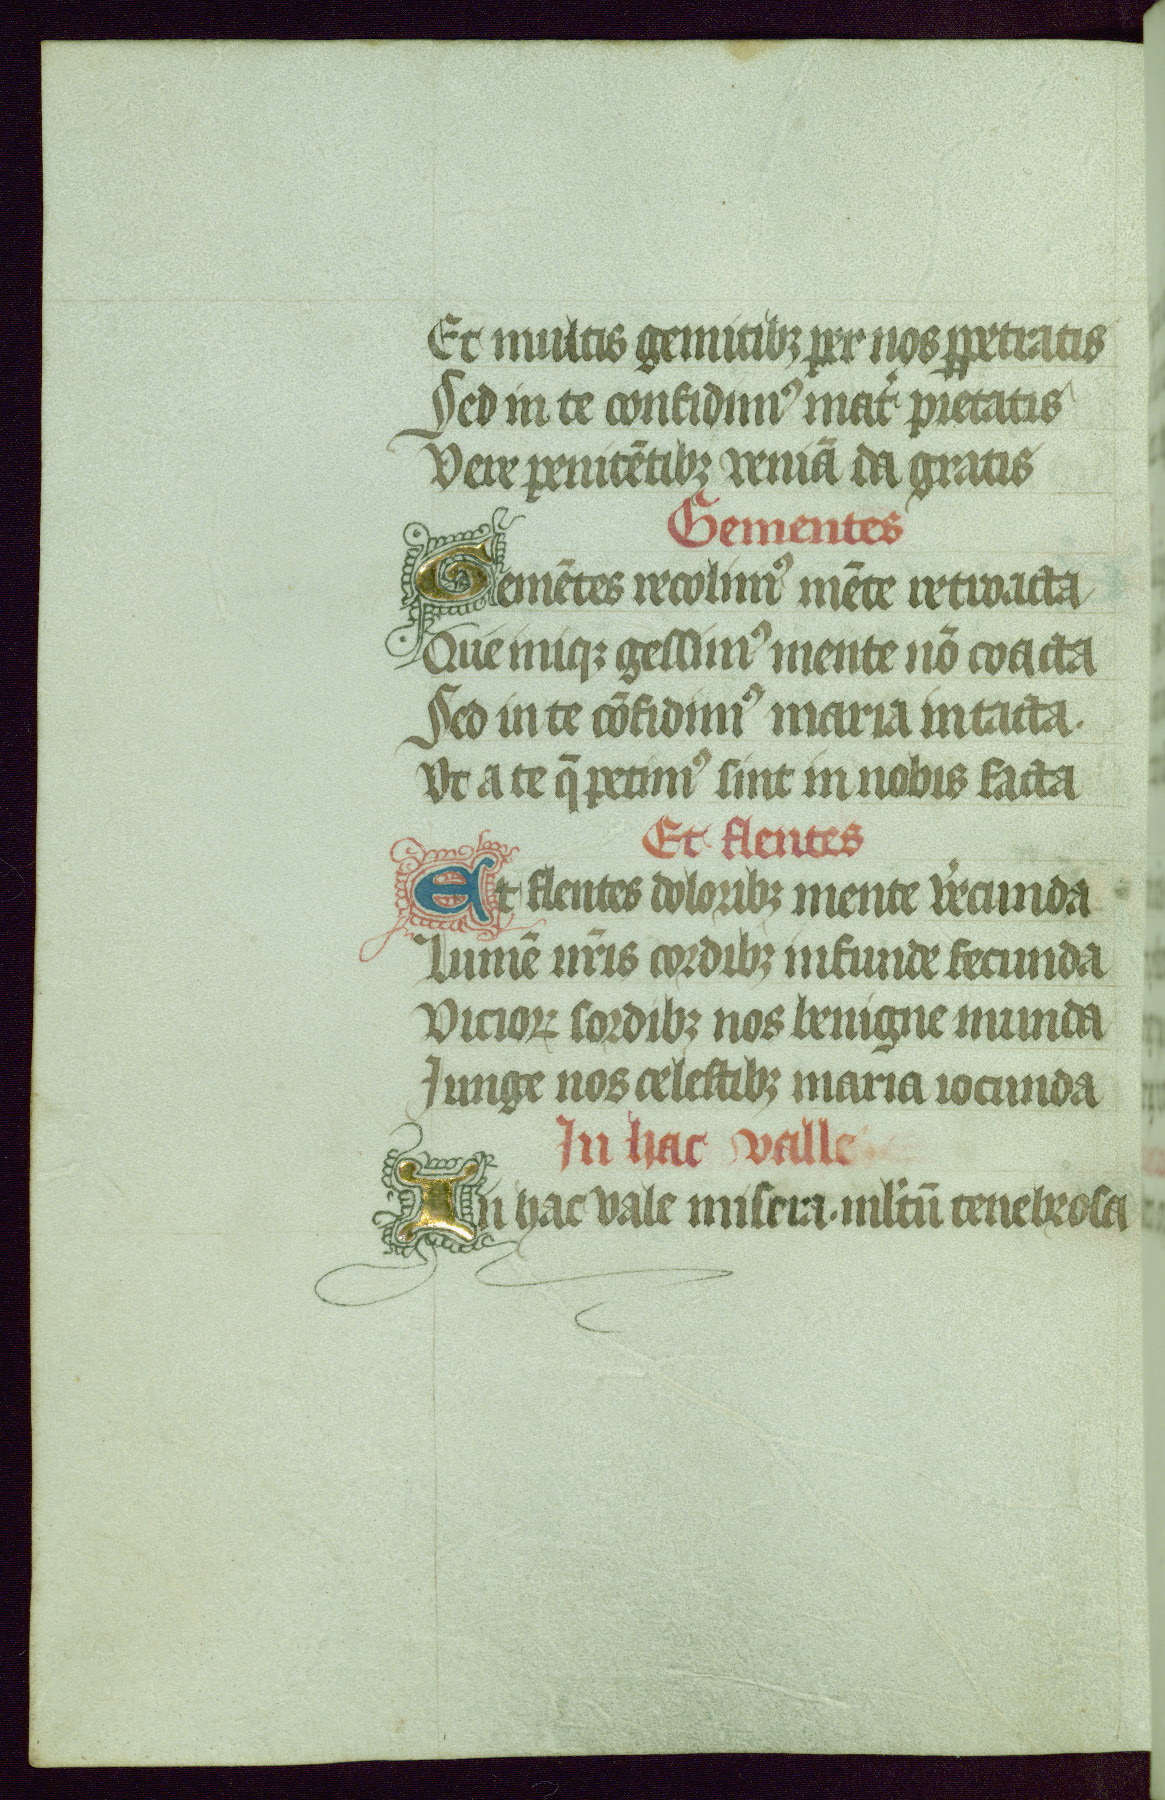 Et multis gemitibꝫ per nos ꝑpetratis
Sed in te confidimꝰ mat̾ pietatis
Vere penitētibꝫ veniā da gratis
Gementes
Gemētes recolimꝰ mēte retroacta
Que niqꝫ gessimꝰ mente nō coacta
Sed in te cōfidimꝰ maria intacta.
Vt a te q̄ petimꝰ sint in nobis facta
Et flentes
Et flentes doloribꝫ mente v̾ecunda
Lumē nr̄is cordibꝫ infunde fecunda
Vicioꝝ sordibꝫ nos benigne munda
Junge nos celestibꝫ maria iocunda
In hac valle
In hac vale misera. ml̾tū tenebrosa